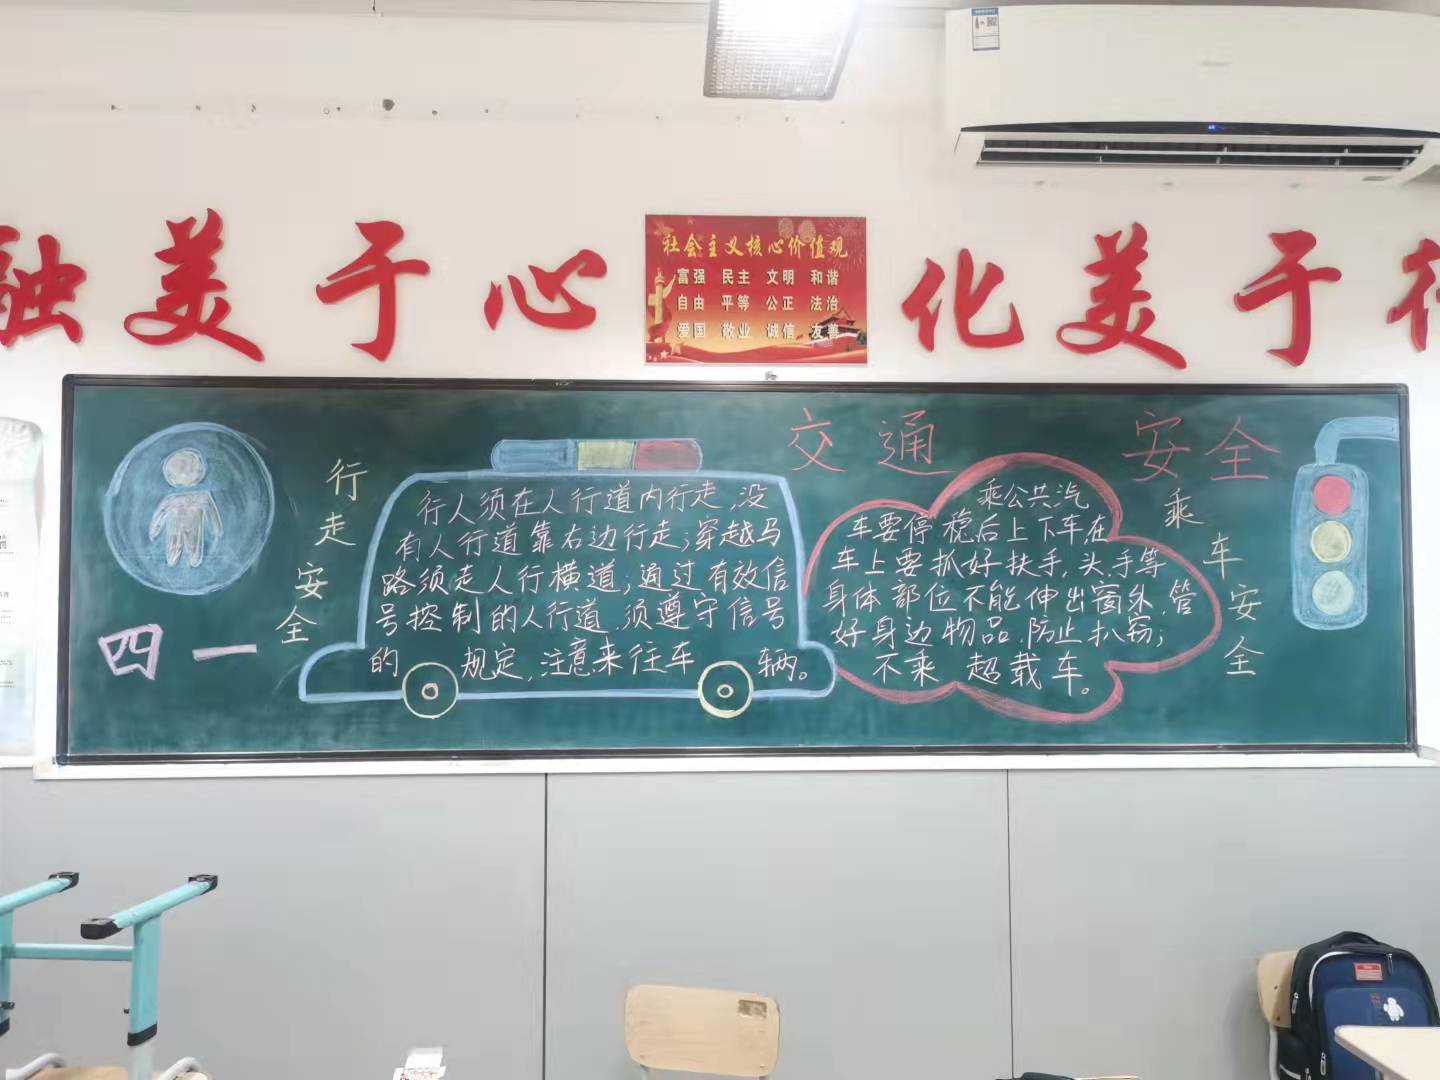 融美于心
社会主义核心价值观
富强 民主 文明 和谐
自由 平等 公正 法治
爱国 敬业 诚信 友善
化美于
交通安全
行走安全
四一
行人须在人行道内行走,没
有人行道靠右边行走;穿越马
路须走人行横道;通过有效信
号控制的人行道,须遵守信号
的规定,注意来往车辆。
乘公共汽
车要停稳后上下车在
车上要抓好扶手,头手等
身体部位不能伸出窗外,管
好身边物品,防止扒窃;
不乘超载车。
乘车安全